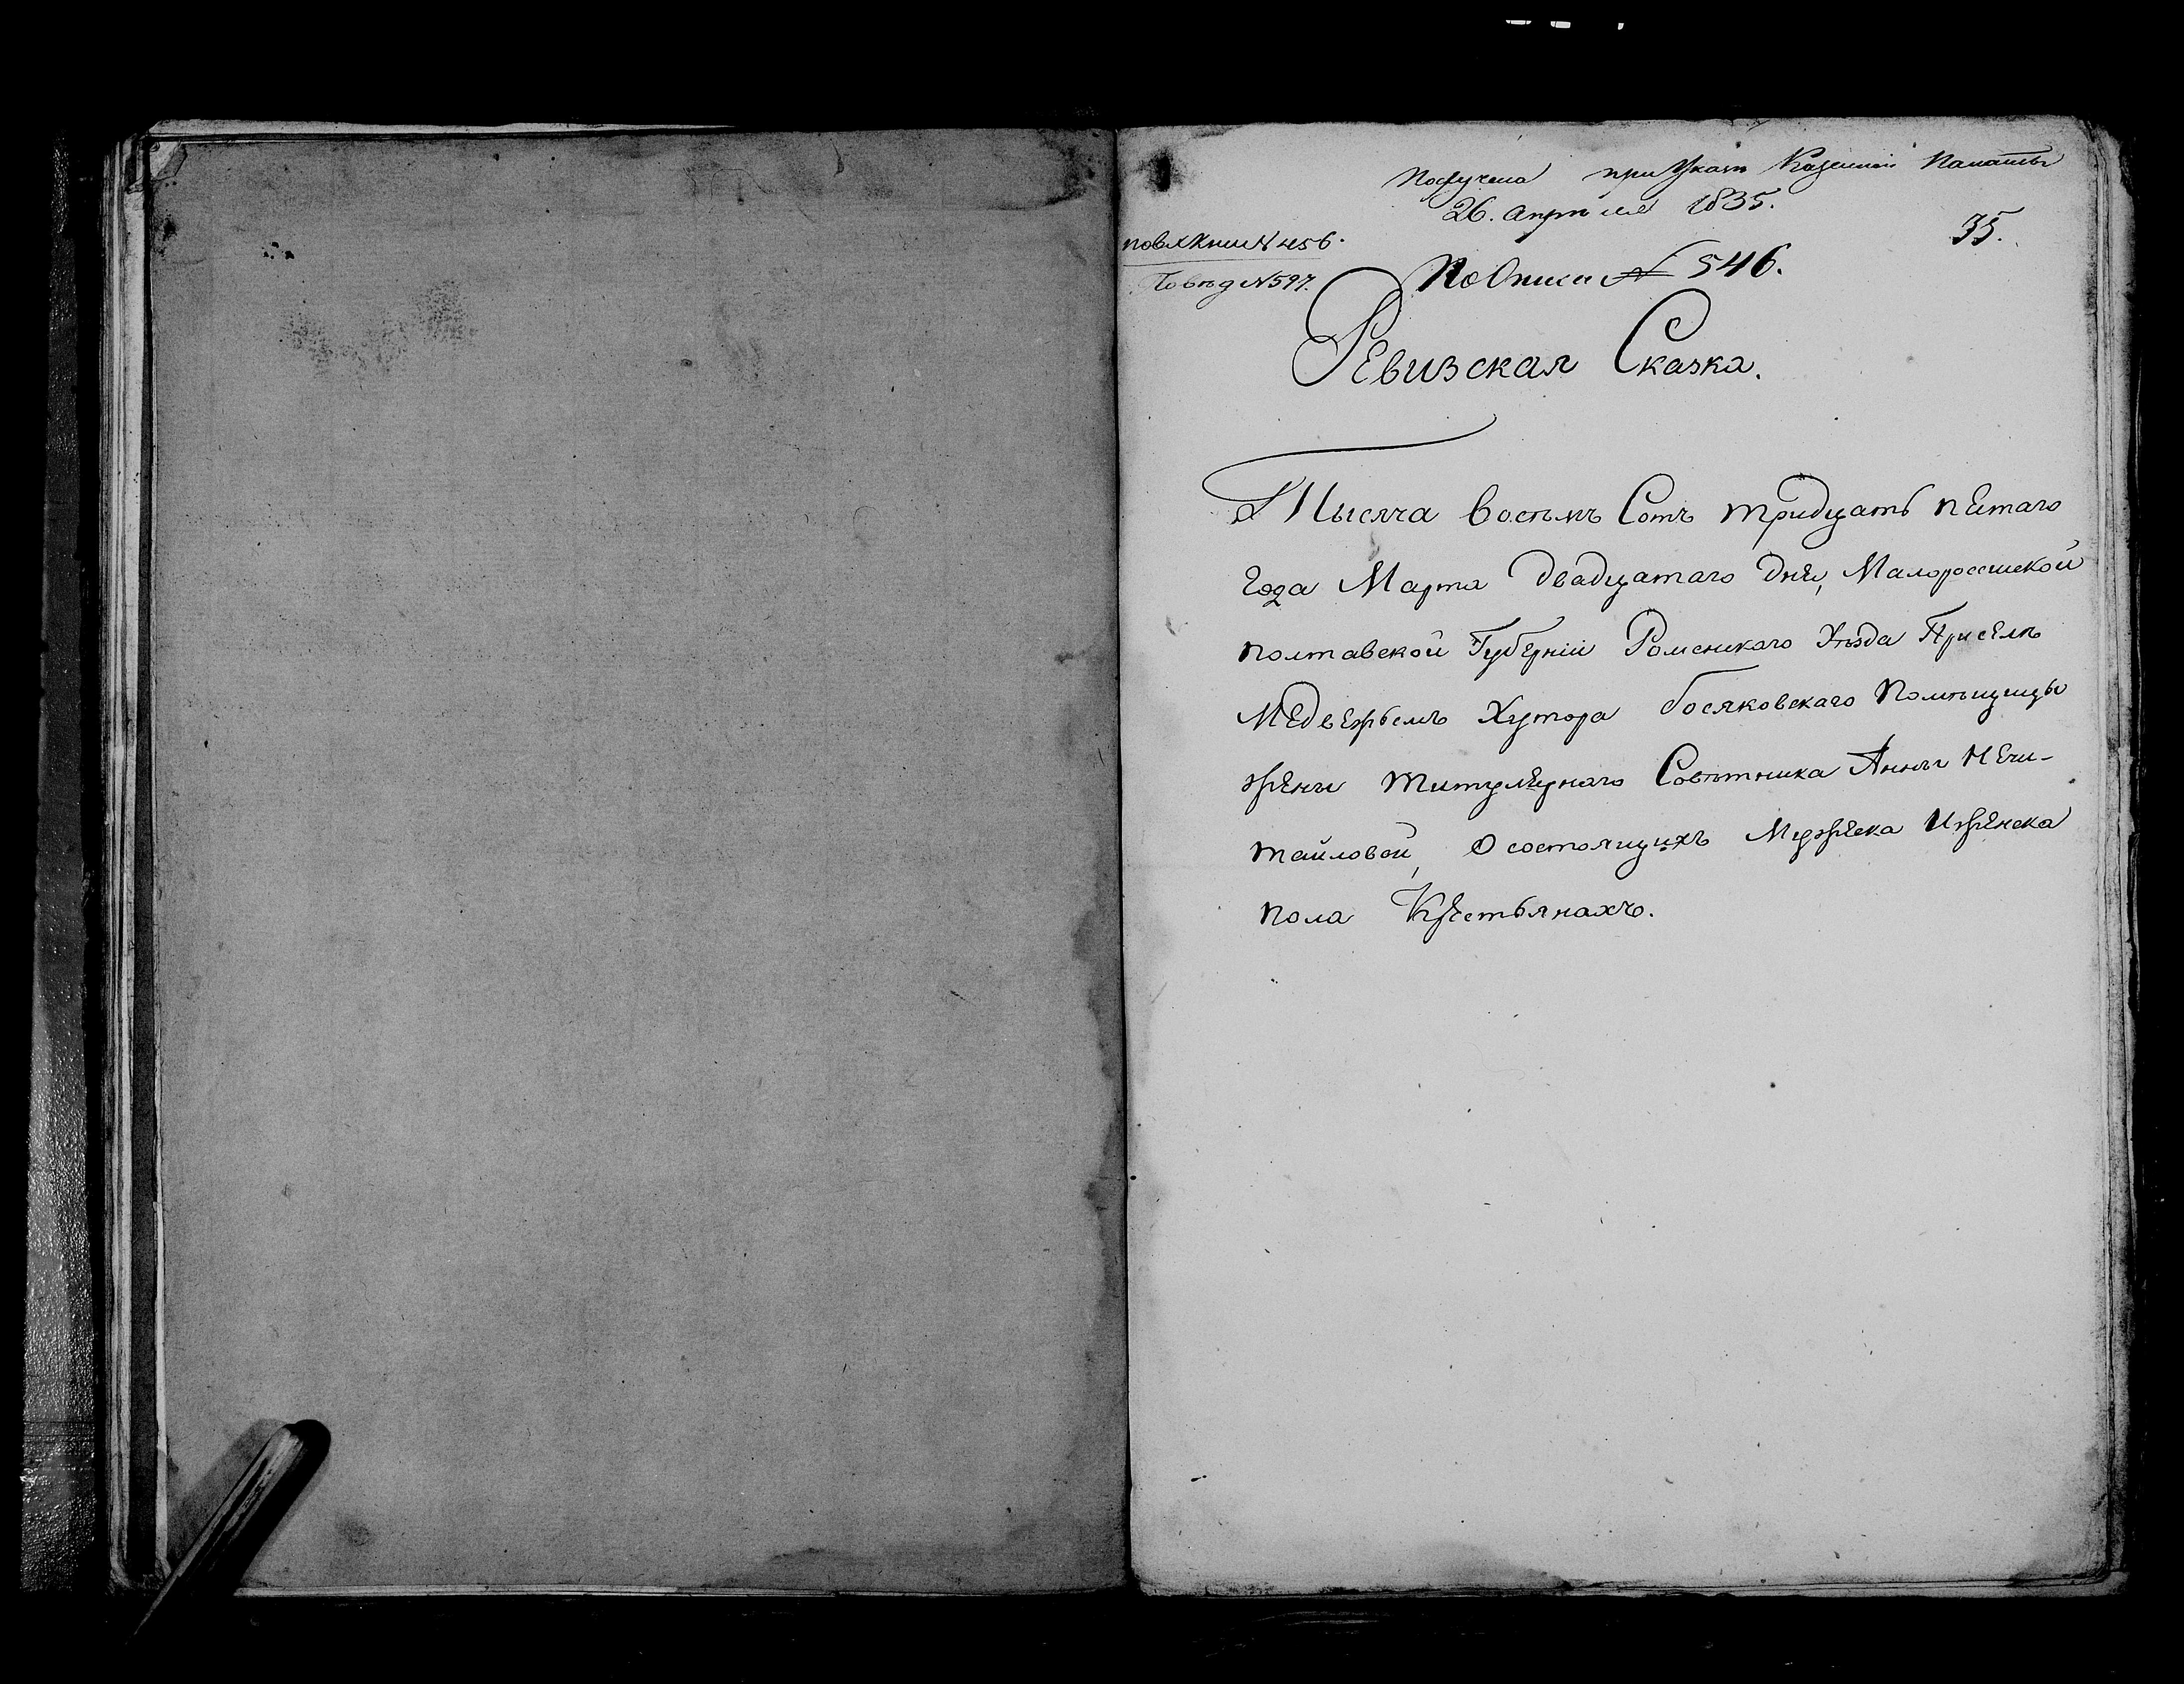 Получена при Указе Казенной Палаты
26. апреля 1835.
35.
№ 456.
№ 597.
По Описи № 546.
Ревизская Сказка.
Тысяча восемь Сотъ тридцать пЕтаго
года Марта двадцатаго дня, Малоросеийской
полтавской Губерніи Роменскаго Уѣзда При селѣ
Медвежьемъ Хутора босяковскаго Помѣщицы
жены титулярнаго Совѣтника Анны НЕчи-
тайловой, О состоящихъ Мужеска Иженска
пола Крестьянахъ.